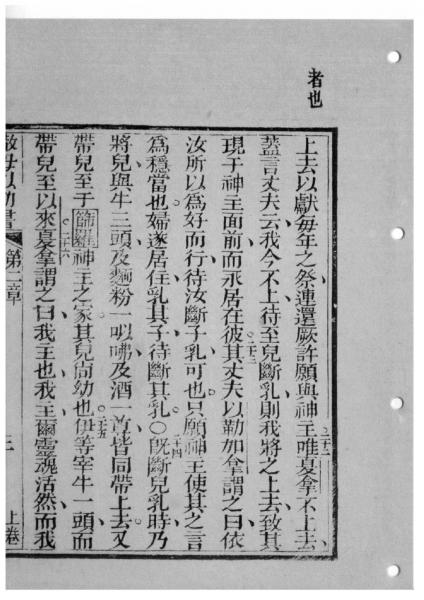 者也
上去以獻每年之祭連還厥許願與神主唯夏拿不上去
蓋言丈夫云我今不上待至兒斷乳則我將之上去致其
現于神主面前而永居在彼其丈夫以勒加拿謂之曰依
汝所以為好而行待汝斷子乳可也只願神主使其之言
為穩當也婦遂居住乳其子待斷其乳〇旣斷兒乳時乃
將兒與牛三頭及麵粉一㕽咈及酒一尊皆同帶上去又
帶兒至于篩羅神主之家其兒尙幼也伊等宰牛一頭而
帶兒至以來夏拿謂之曰我主也我主爾靈魂活然而我
第一章
上卷